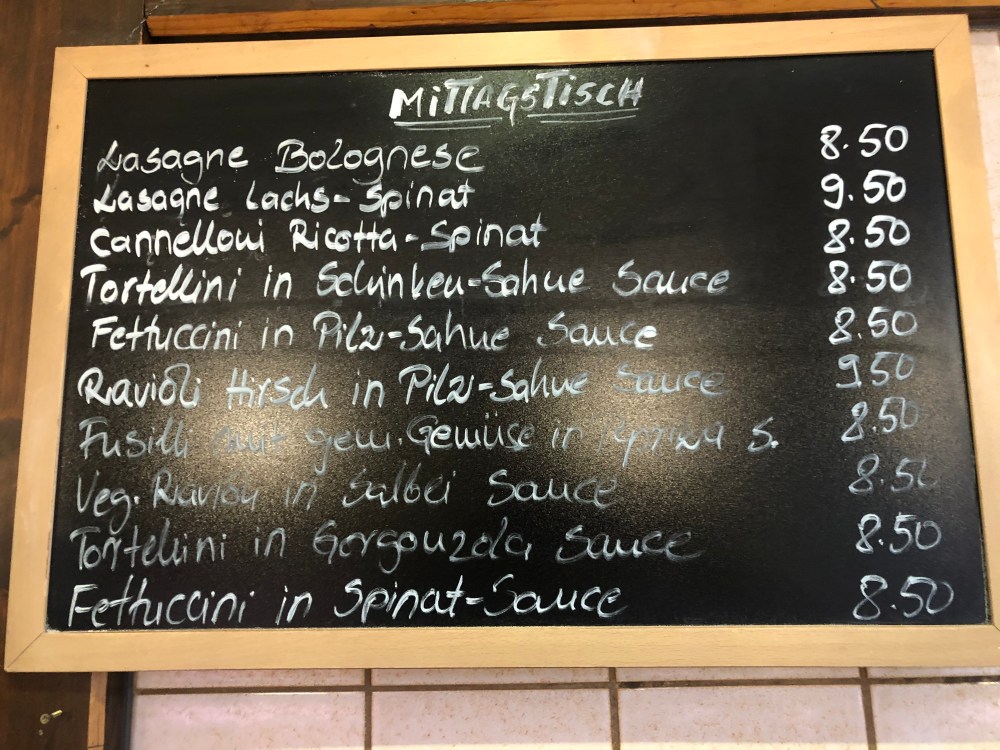 MITTAGSTISCH
Lasagne Bolognese 8.50
Lasagne Lachs-Spinat 9.50
Cannelloni Ricotta-Spinat 8.50
Tortellini in Schinken-Sahne Sauce 8.50
Fettuccini in Pilz-Sahne Sauce 8.50
Ravioli Hirsch in Pilz-Sahne Sauce 9.50
Fusilli mit gem. Gemüse in S. 8.50
Veg. Ravioli in Salbei Sauce 8.50
Tortellini in Gorgonzola Sauce 8.50
Fettuccini in Spinat-Sauce 8.50